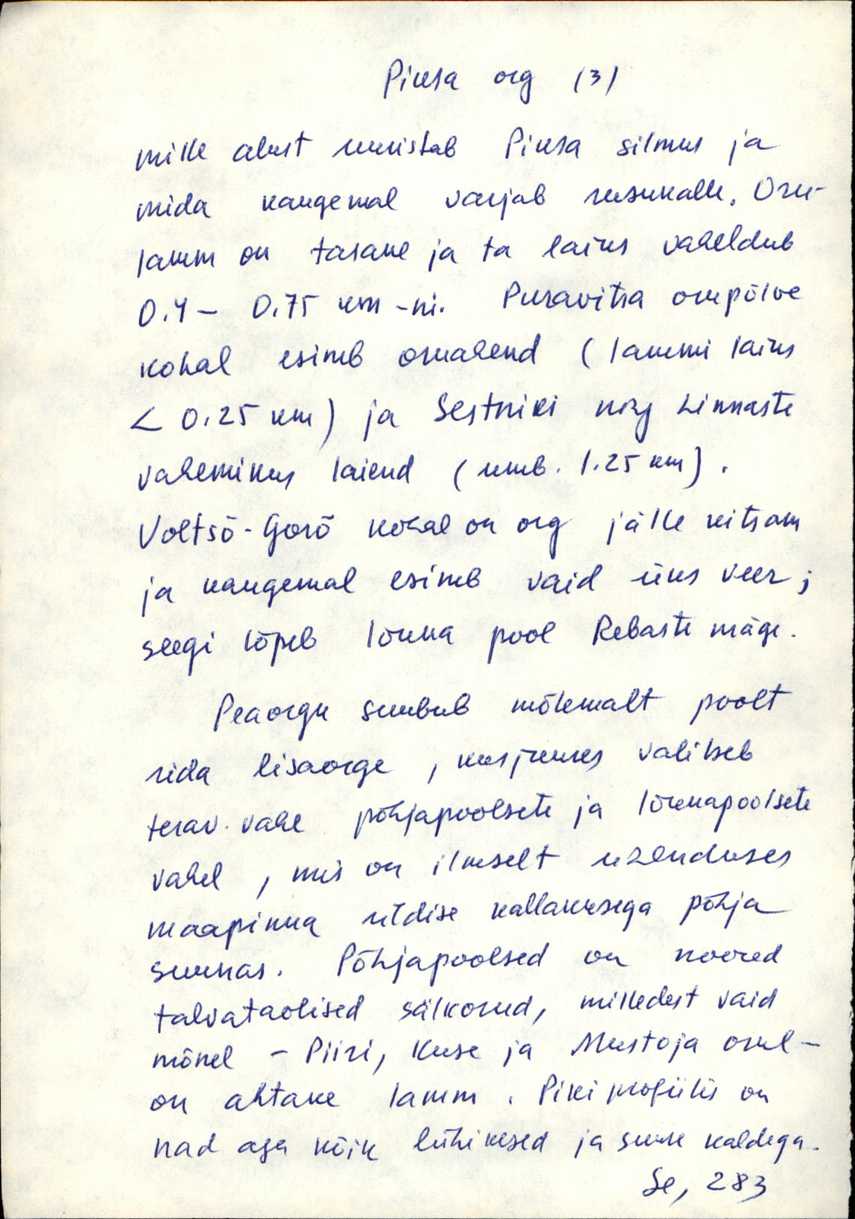 Piusa org (3)
mille alust uuristab Piusa silmus ja
mida kaugemal varjab rusukalle. Oru-
lamm on tasane ja ta laius vaheldub
0.4 – 0.75 km-ni. Puravitsa orupõlve
kohal esineb oruahend (lammi laius
< 0.25 km) ja Sestniki ning Linnaste
vahemikus laiend (umb. 1.25 km).
Voltsõ-Gorõ kohal on org jälle kitsam
ja kaugemal esineb vaid üks veer;
seegi lõpeb lõuna pool Rebaste mäge.
Peaorgu suubub mõlemalt poolt
rida lisaorge, kusjuures valitseb
terav vahe põhjapoolsete ja lõunapoolsete
vahel, mis on ilmselt ühenduses
maapinna üldise kallakusega põhja
suunas. Põhjapoolsed on noored
talvataolised sälkorud, milledest vaid
mõnel – Piiri, Kuse ja Mustoja orul –
on ahtake lamm. Pikiprofiilis on
nad aga kõik lühikesed ja suure kaldega.
Se, 283